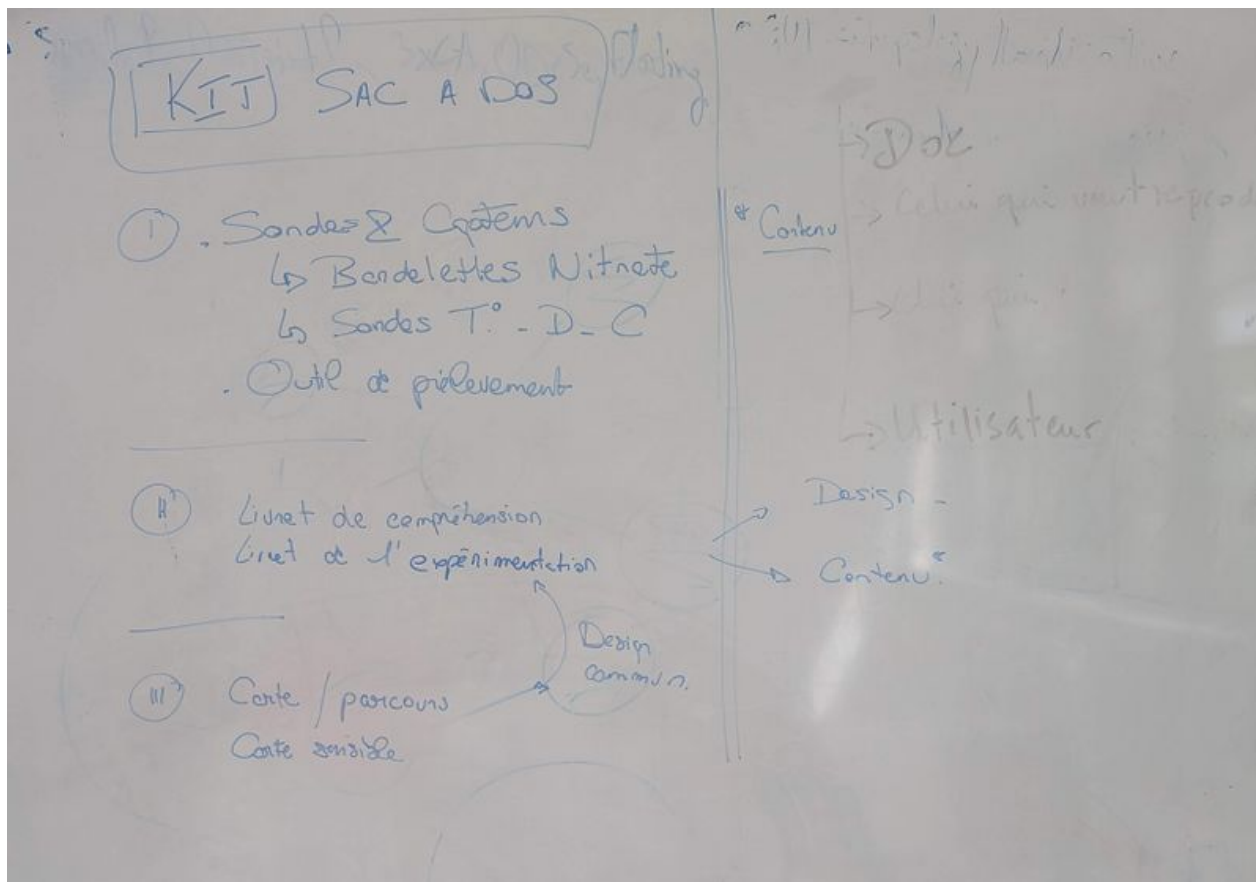 KIT SAC A DOS
I . Sondes & Capteurs
↳ Bandelettes Nitrate
↳ Sondes T.° - D - C
. Outil de prélèvement
II Livret de compréhension
Livret de l'expérimentation
III Carte / parcours
Carte sensible
Design
commun.
* Contenu
→ Doc
→ Celui qui veut reprod
→
→ Utilisateur
Design -
Contenu*